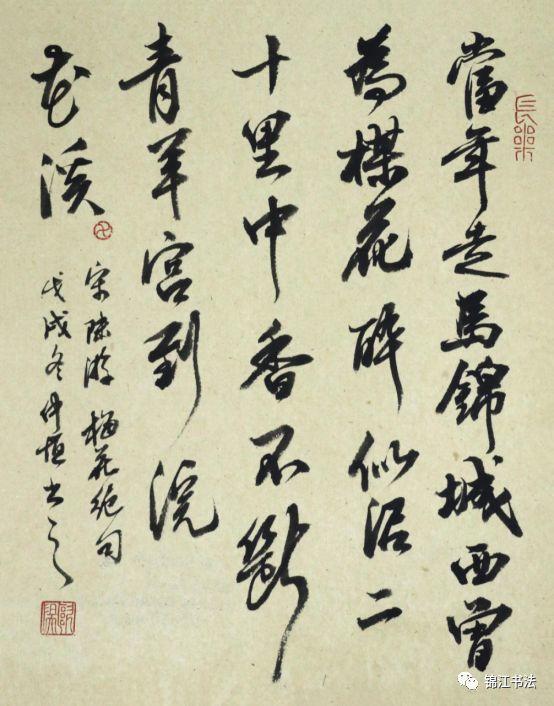 長樂
當年走馬錦城西曾
為楳花醉似泥二
十里中香不斷
青羊宮到浣
花溪
宋陸游 梅花絕句
戊戌冬仲恒书之
锦江书法